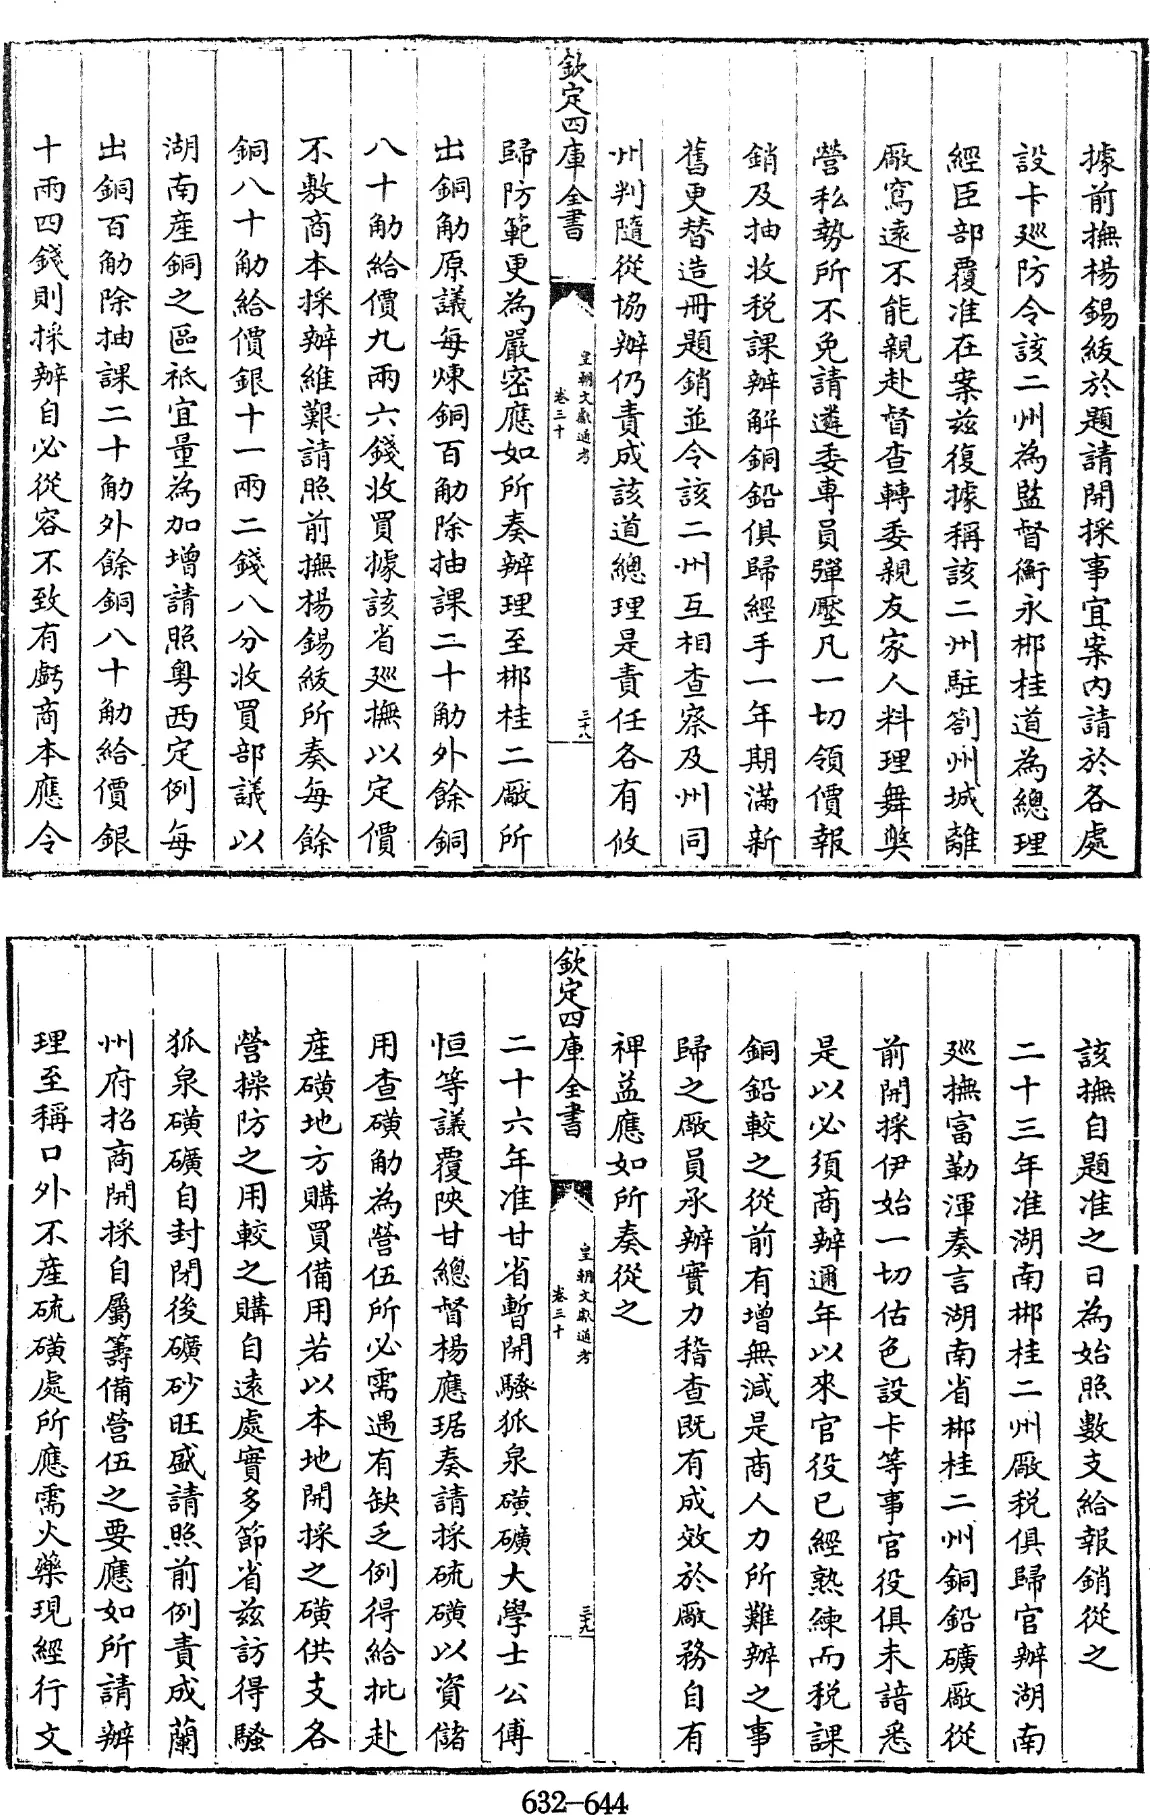 據前撫楊錫紱於題請開採事宜案内請於各處
設卡廵防令該二州為監督衡永郴桂道為總理
經臣部覆准在案兹復據稱該二州駐劄州城離
廠寫遠不能親赴督查轉委親友家人料理舞獘
營私勢所不免請遴委専員彈壓凡一切領價報
銷及抽收税課辦解銅鉛俱歸經手一年期滿新
舊更替造冊題銷並令該二州互相查察及州同
州判隨從協辦仍責成該道總理是責任各有攸
欽定四庫全書
皇朝文獻通考
卷三十
三十八
歸防範更為嚴密應如所奏辦理至郴桂二廠所
出銅觔原議每煉銅百觔除抽課二十觔外餘銅
八十觔給價九兩六錢收買據該省廵撫以定價
不敷商本採辦維艱請照前撫楊錫紱所奏每餘
銅八十觔給價銀十一兩二錢八分收買部議以
湖南産銅之區祗宜量為加增請照粤西定例每
出銅百觔除抽課二十觔外餘銅八十觔給價銀
十兩四錢則採辦自必從容不致有虧商本應令
該撫自題准之日為始照數支給報銷從之
二十三年准湖南郴桂二州廠税俱歸官辦湖南
廵撫富勒渾奏言湖南省郴桂二州銅鉛礦廠從
前開採伊始一切估色設卡等事官役俱未諳悉
是以必須商辦邇年以來官役已經熟練而税課
銅鉛較之從前有增無減是商人力所難辦之事
歸之廠員承辦實力稽查既有成效於廠務自有
裨益應如所奏從之
欽定四庫全書
皇朝文獻通考
卷三十
三十九
二十六年准甘省暫開騷狐泉磺礦大學士公傅
恒等議覆陜甘總督楊應琚奏請採硫磺以資儲
用查磺觔為營伍所必需遇有缺乏例得給批赴
産磺地方購買備用若以本地開採之磺供支各
營操防之用較之購自遠處實多節省兹訪得騷
狐泉磺礦自封閉後礦砂旺盛請照前例責成蘭
州府招商開採自屬籌備營伍之要應如所請辦
理至稱口外不産硫磺處所應需火藥現經行文
632-644